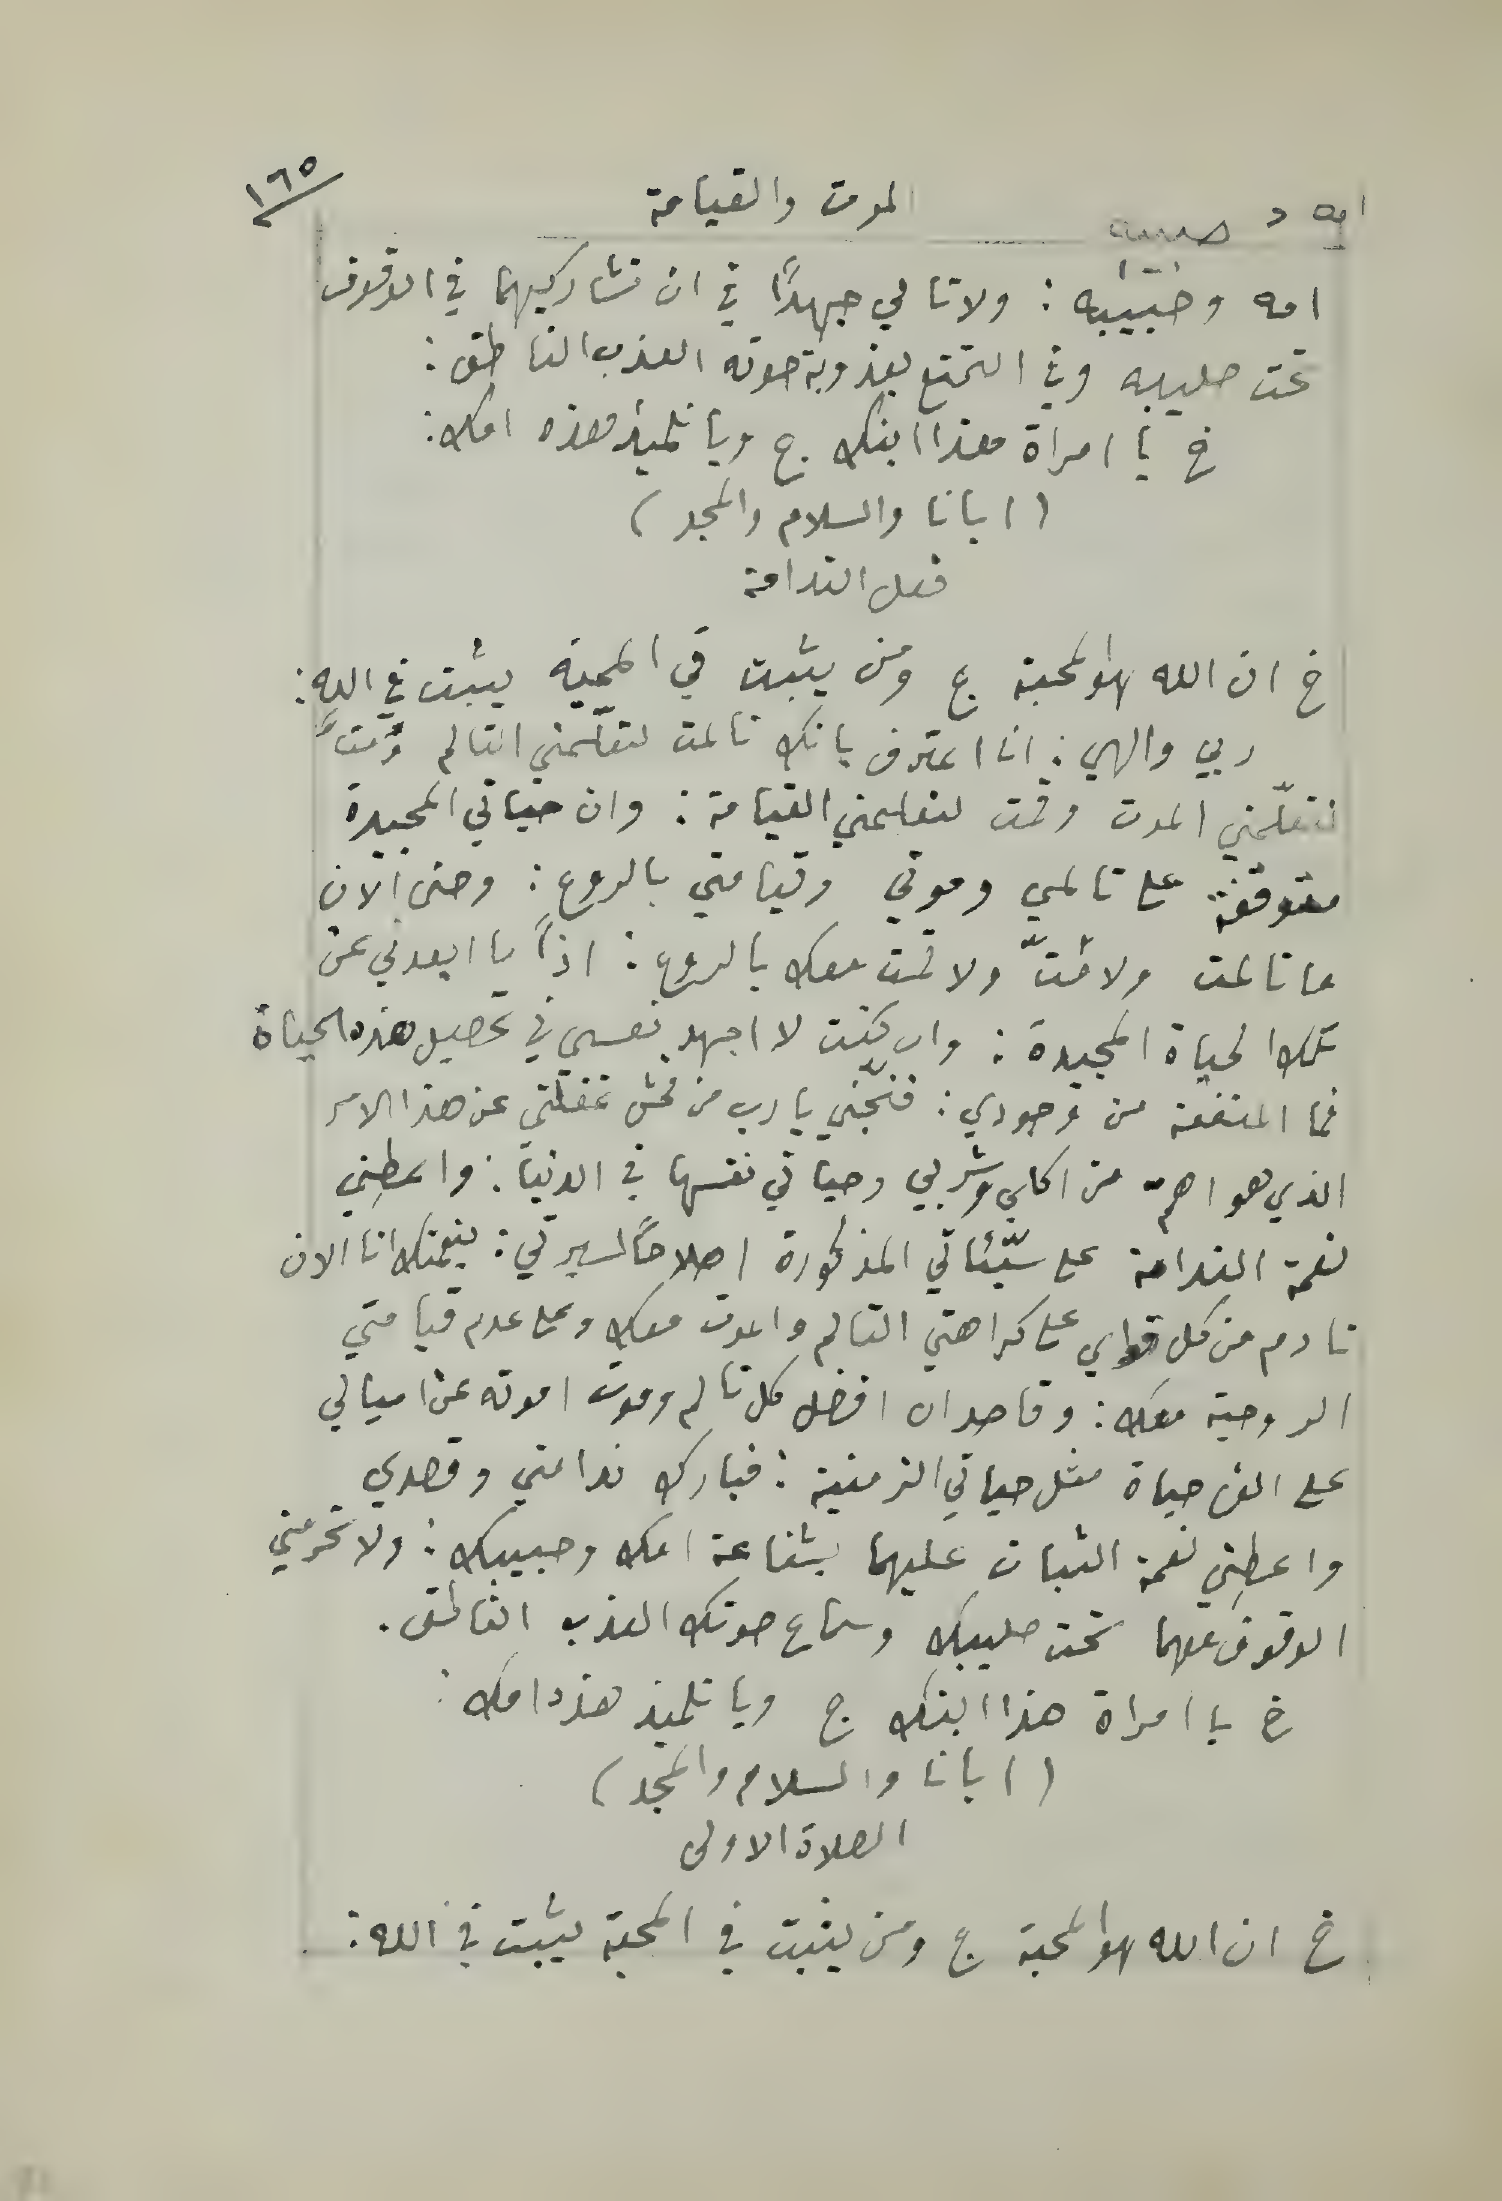 ١٦٥
الموت والقيامة
امه و حبيبه
امه وحبيبه : ولا تالي جهدًا في ان تشاركيهما في الوقوف
تحت صليبه وفي التمتع بعذوبة صوته العذب الناطق :
خ يا امراة هذا ابنك . ج ويا تلميذ هذه امك :
( ابانا والسلام والمجد )
فعل الندامة
خ ان الله هو المحبة ج ومن يثبت في المحبة يثبت في الله :
ربي والهي : انا اعترف بانك تالمت لتعلّمني التالم ومُتّ
لتعلّمني الموت وقمت لتعلمني القيامة : وان حياتي المجيدة
متوقفة على تالمي وموتي وقيامتي بالروح : وحتى الان
ما تالمت ولا مُتّ ولا قمت معك بالروح : اذاً يا ابعدني عن
تلك الحياة المجيدة : وان كنت لا اجهد نفسي في تحصيل هذه الحياة
فما المنفعة من وجودي : فنجّني يا رب من فحش غفلتي عن هذا الامر
الذي هو اهم من اكلي وشربي وحياتي نفسها في الدنيا : واعطِني
نعمة الندامة على سيّئاتي المذكورة اصلاحًا لسيرتي : بنعمتك انا الان
نادم من كل قواي على كراهتي التالم والموت معك وعلى عدم قيامتي
الروحية معك : وقاصد ان افضل كل تالم وموت اموته عن اميالي
على الف حياة مثل حياتي الزمنية : فبارك ندامتي وقصدي
واعطِني نعمة الثبات عليهما بشفاعة امك وحبيبك : ولا تحرمني
الوقوف معهما تحت صليبك وسماع صوتك العذب الناطق .
خ يا امراة هذا ابنك ج ويا تلميذ هذه امك :
( ابانا والسلام والمجد )
الصلاة الاولى
خ ان الله هو المحبة ج ومن يثبت في المحبة يثبت في الله :